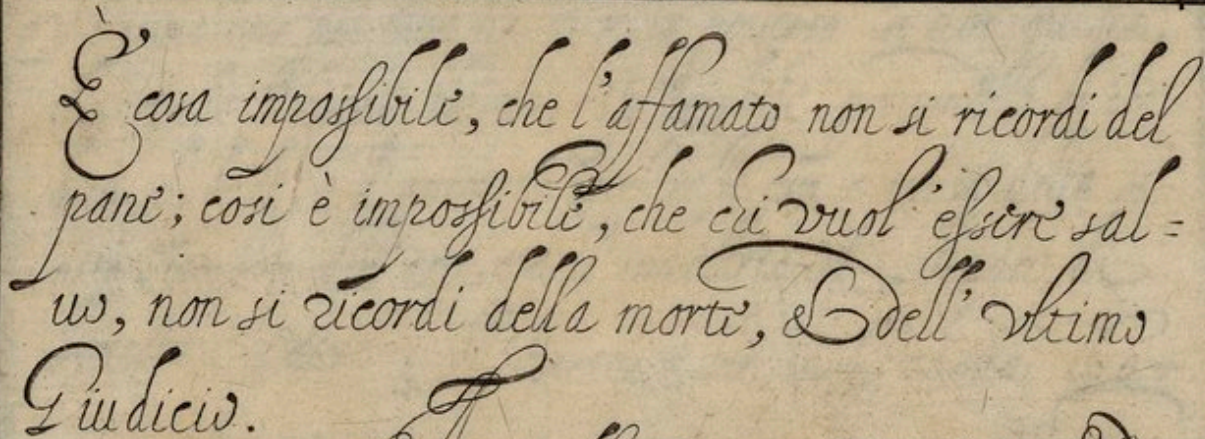 È cosa impossibile, che l'affamato non si ricordi del
pane; cosi è impossibile, che chi vuol' essere sal=
uo, non si ricordi della morte, & dell' vltimo
Giudicio.